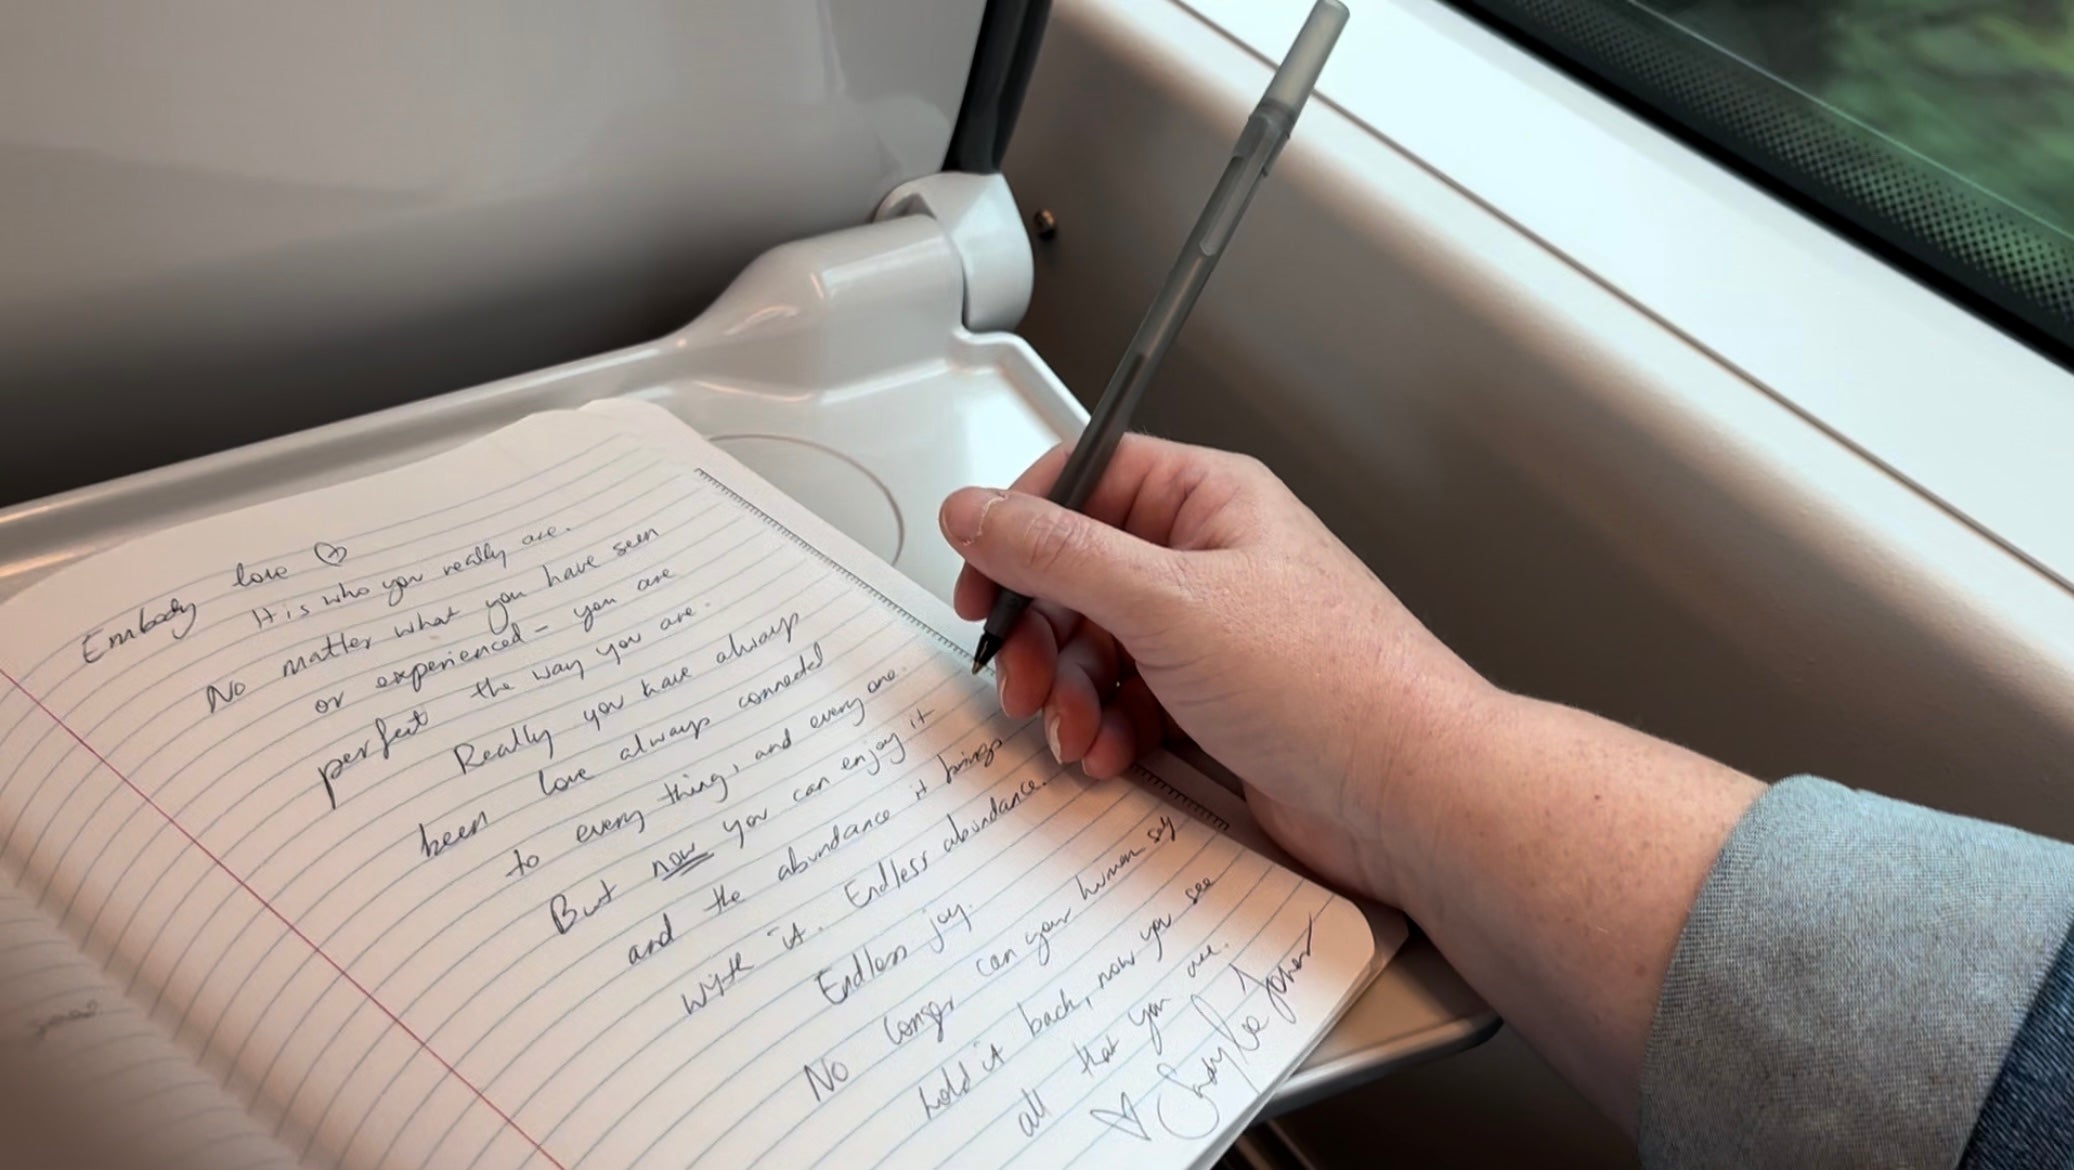 Embody love
It is who you really are.
No matter what you have seen
or experienced - you are
perfect the way you are.
Really you have always
been love always connected
to every thing, and every one.
But now you can enjoy it
and the abundance it brings
with it. Endless abundance.
Endless joy.
No longer can your human say
hold it back, now you see
all that you are.